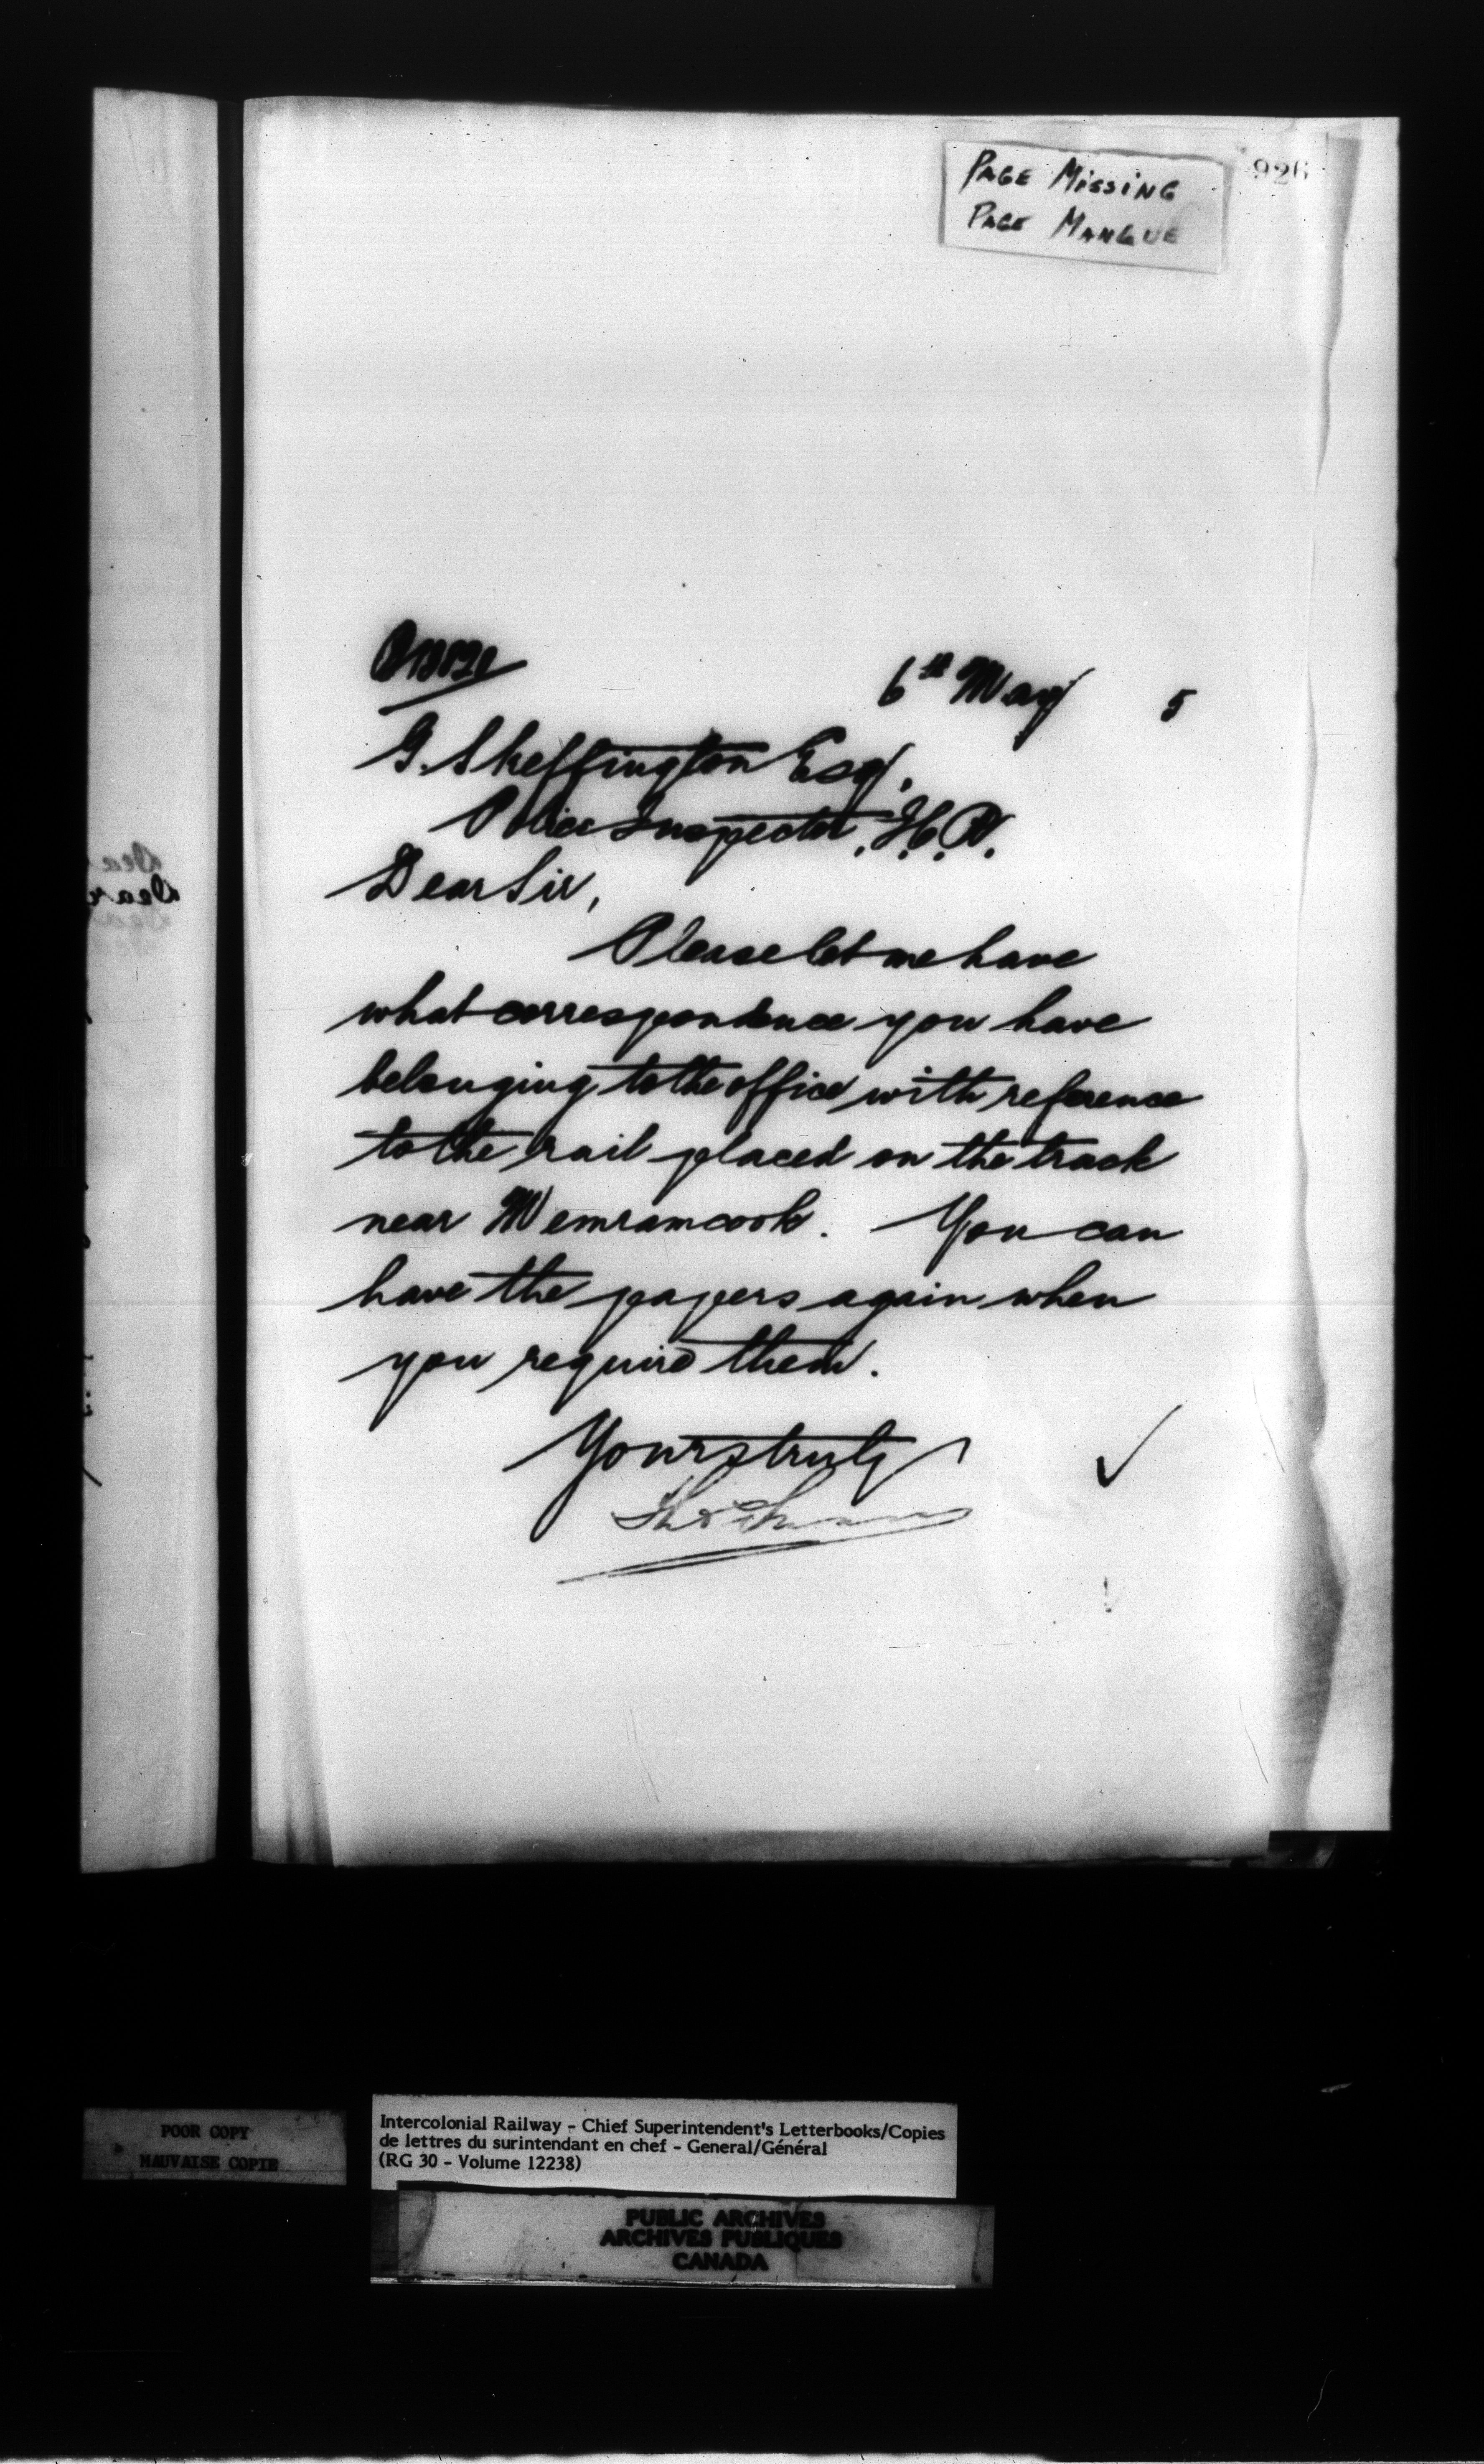 PAGE MISSING
PAGE MANQUE
926
6th May 5
G. Skeffington Esq,
Police Inspector, I.C.R.
Dear Sir,
Please let me have
what correspondence you have
belonging to the office with reference
to the rail placed on the track
near Memramcook. You can
have the papers again when
you require them.
Yours truly
POOR COPY
MAUVAISE COPIE
Intercolonial Railway - Chief Superintendent's Letterbooks/Copies
de lettres du surintendant en chef - General/Général
(RG 30 - Volume 12238)
PUBLIC ARCHIVES
ARCHIVES PUBLIQUES
CANADA